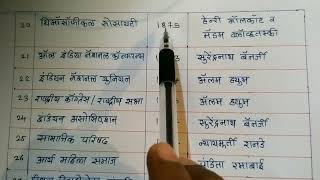 20 थिऑसॉफीकल सोसायटी 1875 हेन्री ऑलकॉट व
मॅडम ब्लॅाव्हतस्की
21 ऑल इंडिया नॅशनल कॉन्फरन्स सुरेंद्रनाथ बॅनर्जी
22 इंडियन नॅशनल युनियन ॲलन ह्युम
23 राष्ट्रीय काँग्रेस / राष्ट्रीय सभा ॲलन ह्युम
24 इंडियन असोसिएशन सुरेंद्रनाथ बॅनर्जी
25 सामाजिक परिषद न्यायमूर्ती रानडे
26 आर्य महिला समाज पंडिता रमाबाई